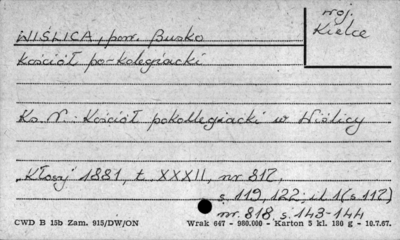 WIŚLICA, pow. Busko
woj.
Kielce
Kościół po-kolegiacki
Ks. N.: Kościół pokollegiacki w Wiślicy
"Kłosy" 1881, t. XXXII, nr 817,
s. 119, 122; il. 1 (s. 117)
nr. 818, s. 143-144
CWD B 15b Zam. 915/DW/ON
Wrak 647 - 980.000 - Karton 5 kl. 180 g - 10.7.67.